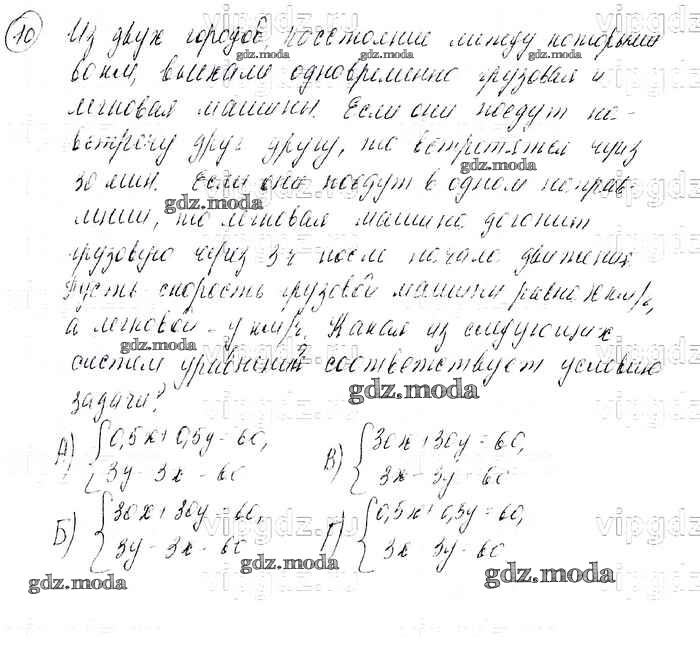 10) Из двух городов, расстояние между которыми
60 км, выехали одновременно грузовая и
легковая машины. Если они поедут на-
встречу друг другу, то встретятся через
30 мин. Если они поедут в одном направ-
лении, то легковая машина догонит
грузовую через 3 ч после начала движения.
Пусть скорость грузовой машины равна x км/ч,
а легковой - y км/ч. Какая из следующих
систем уравнений соответствует условию
задачи?
А) { 0,5x + 0,5y = 60,
3y - 3x = 60
В) { 30x + 30y = 60,
3x - 3y = 60
Б) { 30x + 30y = 60,
3y - 3x = 60
Г) { 0,5x + 0,5y = 60,
3x - 3y = 60
gdz.moda
vipgdz.ru